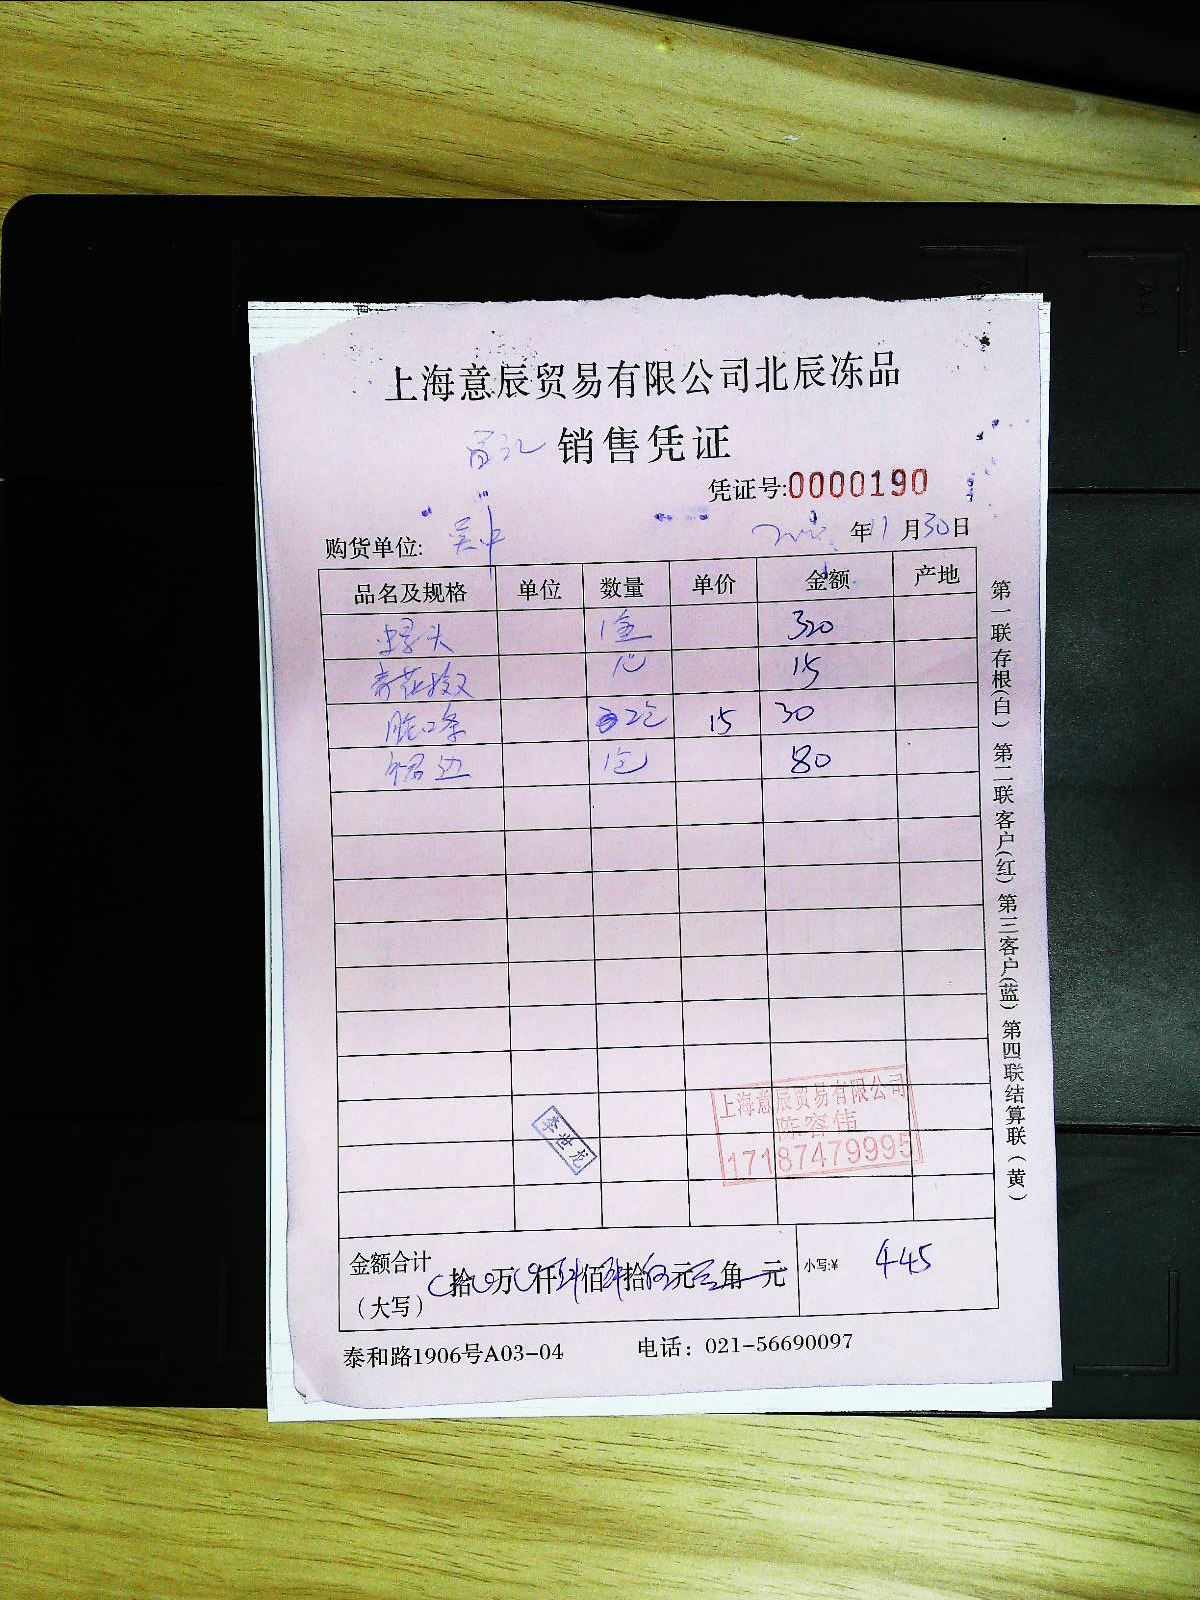 上海意辰贸易有限公司北辰冻品
销售凭证
凭证号:0000190
购货单位: 吴中 年11月30日
品名及规格 单位 数量 单价 金额 产地
螺头 1盒 320
青花椒 1包 15
脆口条 2包 15 30
裙边 1包 80
上海意辰贸易有限公司
陈容伟
17187479995
李世龙
金额合计 拾 万 仟 肆佰肆拾伍元 角 元 小写:¥ 445
（大写）
泰和路1906号A03-04 电话：021-56690097
第一联存根(白) 第二联客户(红) 第三客户(蓝) 第四联结算联(黄)